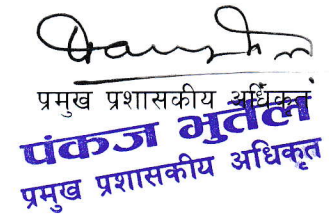 प्रमुख प्रशासकीय अधिकृत
पंकज भुर्तेल
प्रमुख प्रशासकीय अधिकृत